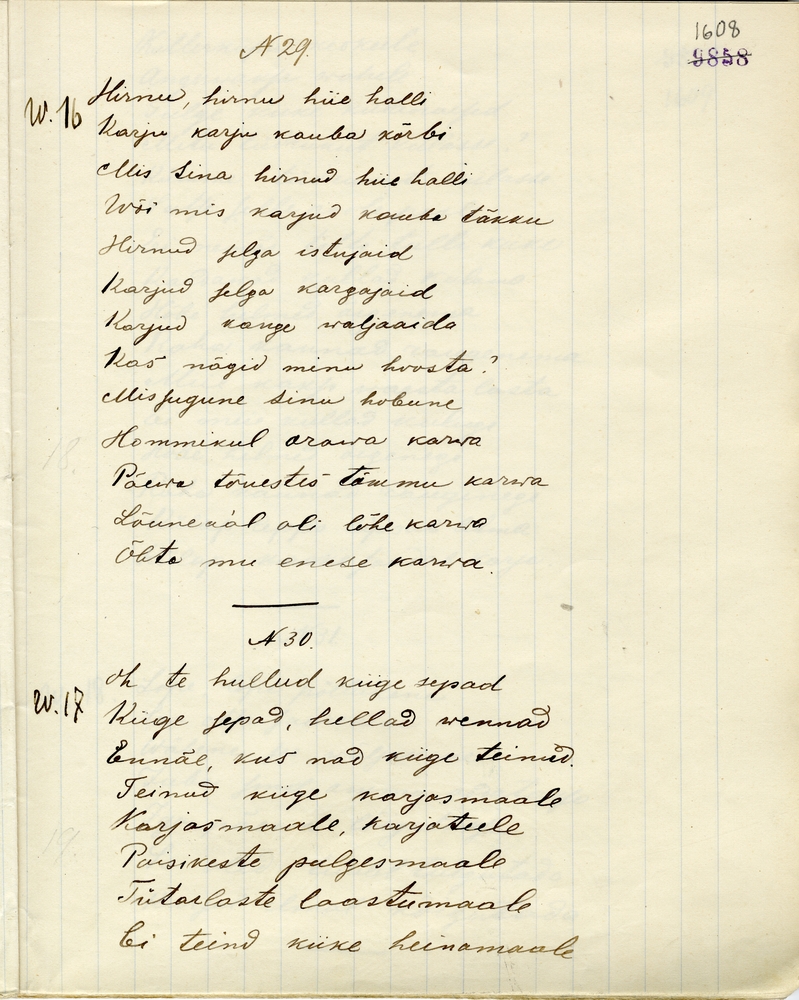 1608
9858
N 29.
W. 16
Hirnu, hirnu hiie halli
Karju karju kauba kõrbi
Mis sina hirnud hiie halli
Wõi mis karjud kauba täkku
Hirnud selga istujaid
Karjud selga kargajaid
Karjud kange waljaaida
Kas nägid minu hoosta?
Missugune sinu hobune
Hommikul orawa karwa
Päewa tõuestes tõmmu karwa
Lõuneaal oli lõhe karwa
Õhta mu enese karwa.
N 30.
W. 17
Oh te hullud kiige sepad
Kiige sepad, hellad wennad
Ennäe, kus nad kiige teinud.
Teinud kiige karjasmaale
Karjasmaale, karjateele
Poisikeste pulgesmaale
Tütarlaste laastumaale
Ei teind kiike heinamaale